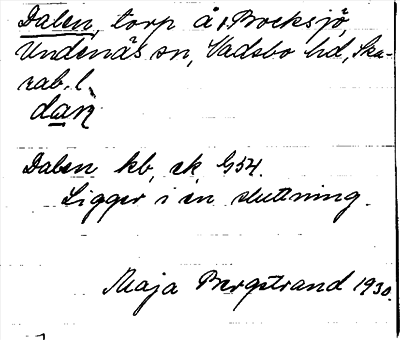 Dalen, torp å Bocksjö,
Undenäs sn, Vadsbo hd, Ska-
rab. l.
dan
Dalen kb, ek G54.
Ligger i en sluttning.
Maja Bergstrand 1930.